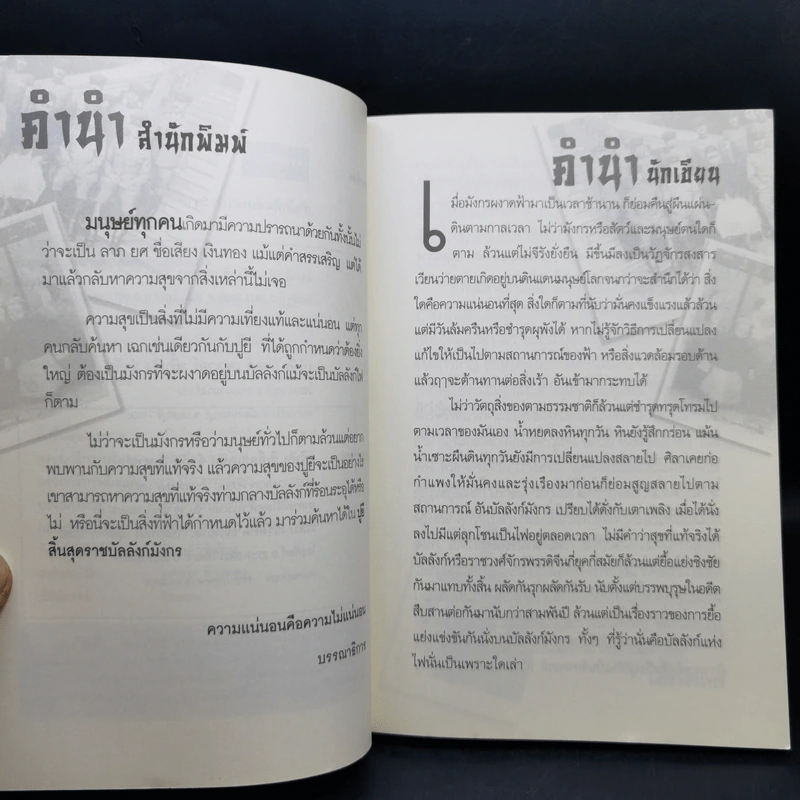 คำนำ สำนักพิมพ์
มนุษย์ทุกคนเกิดมามีความปรารถนาด้วยกันทั้งนั้นไม่
ว่าจะเป็น ลาภ ยศ ชื่อเสียง เงินทอง แม้แต่คำสรรเสริญ แต่ได้
มาแล้วกลับหาความสุขจากสิ่งเหล่านี้ไม่เจอ
ความสุขเป็นสิ่งที่ไม่มีความเที่ยงแท้และแน่นอน แต่ทุก
คนกลับค้นหา เฉกเช่นเดียวกันกับปูยี ที่ได้ถูกกำหนดว่าต้องยิ่ง
ใหญ่ ต้องเป็นมังกรที่จะผงาดอยู่บนบัลลังก์แม้จะเป็นบัลลังก์ไฟ
ก็ตาม
ไม่ว่าจะเป็นมังกรหรือว่ามนุษย์ทั่วไปก็ตามล้วนแต่อยาก
พบพานกับความสุขที่แท้จริง แล้วความสุขของปูยีจะเป็นอย่างไร
เขาสามารถหาความสุขที่แท้จริงท่ามกลางบัลลังก์ที่ร้อนระอุได้หรือ
ไม่ หรือนี่จะเป็นสิ่งที่ฟ้าได้กำหนดไว้แล้ว มาร่วมค้นหาได้ใน ปูยี
สิ้นสุดราชบัลลังก์มังกร
ความแน่นอนคือความไม่แน่นอน
บรรณาธิการ
คำนำ นักเขียน
เมื่อมังกรผงาดฟ้ามาเป็นเวลาช้านาน ก็ย่อมคืนสู่ผืนแผ่น-
ดินตามกาลเวลา ไม่ว่ามังกรหรือสัตว์และมนุษย์ตนใดก็
ตาม ล้วนแต่ไม่จีรังยั่งยืน มีขึ้นมีลงเป็นวัฏจักรสงสาร
เวียนว่ายตายเกิดอยู่บนดินแดนมนุษย์โลกจนกว่าจะสำนึกได้ว่า สิ่ง
ใดคือความแน่นอนที่สุด สิ่งใดก็ตามที่นับว่ามั่นคงแข็งแรงแล้วล้วน
แต่มีวันล้มครืนหรือชำรุดผุพังได้ หากไม่รู้จักวิธีการเปลี่ยนแปลง
แก้ไขให้เป็นไปตามสถานการณ์ของฟ้า หรือสิ่งแวดล้อมรอบด้าน
แล้วฤๅจะต้านทานต่อสิ่งเร้า อันเข้ามากระทบได้
ไม่ว่าวัตถุสิ่งของตามธรรมชาติก็ล้วนแต่ชำรุดทรุดโทรมไป
ตามเวลาของมันเอง น้ำหยดลงหินทุกวัน หินยังรู้สึกกร่อน แม้น
น้ำเซาะผืนดินทุกวันยังมีการเปลี่ยนแปลงสลายไป ศิลาเคยก่อ
กำแพงให้มั่นคงและรุ่งเรืองมาก่อนก็ย่อมสูญสลายไปตาม
สถานการณ์ อันบัลลังก์มังกร เปรียบได้ดั่งกับเตาเพลิง เมื่อได้นั่ง
ลงไปมีแต่ลุกโชนเป็นไฟอยู่ตลอดเวลา ไม่มีคำว่าสุขที่แท้จริงได้
บัลลังก์หรือราชวงศ์จักรพรรดิจีนกี่ยุคกี่สมัยก็ล้วนแต่ยื้อแย่งชิงชัย
กันมาแทบทั้งสิ้น ผลัดกันรุกผลัดกันรับ นับตั้งแต่บรรพบุรุษในอดีต
สืบสานต่อกันมานับกว่าสามพันปี ล้วนแต่เป็นเรื่องราวของการยื้อ
แย่งแข่งขันกันนั่งบนบัลลังก์มังกร ทั้งๆ ที่รู้ว่านั่นคือบัลลังก์แห่ง
ไฟนั่นเป็นเพราะใดเล่า